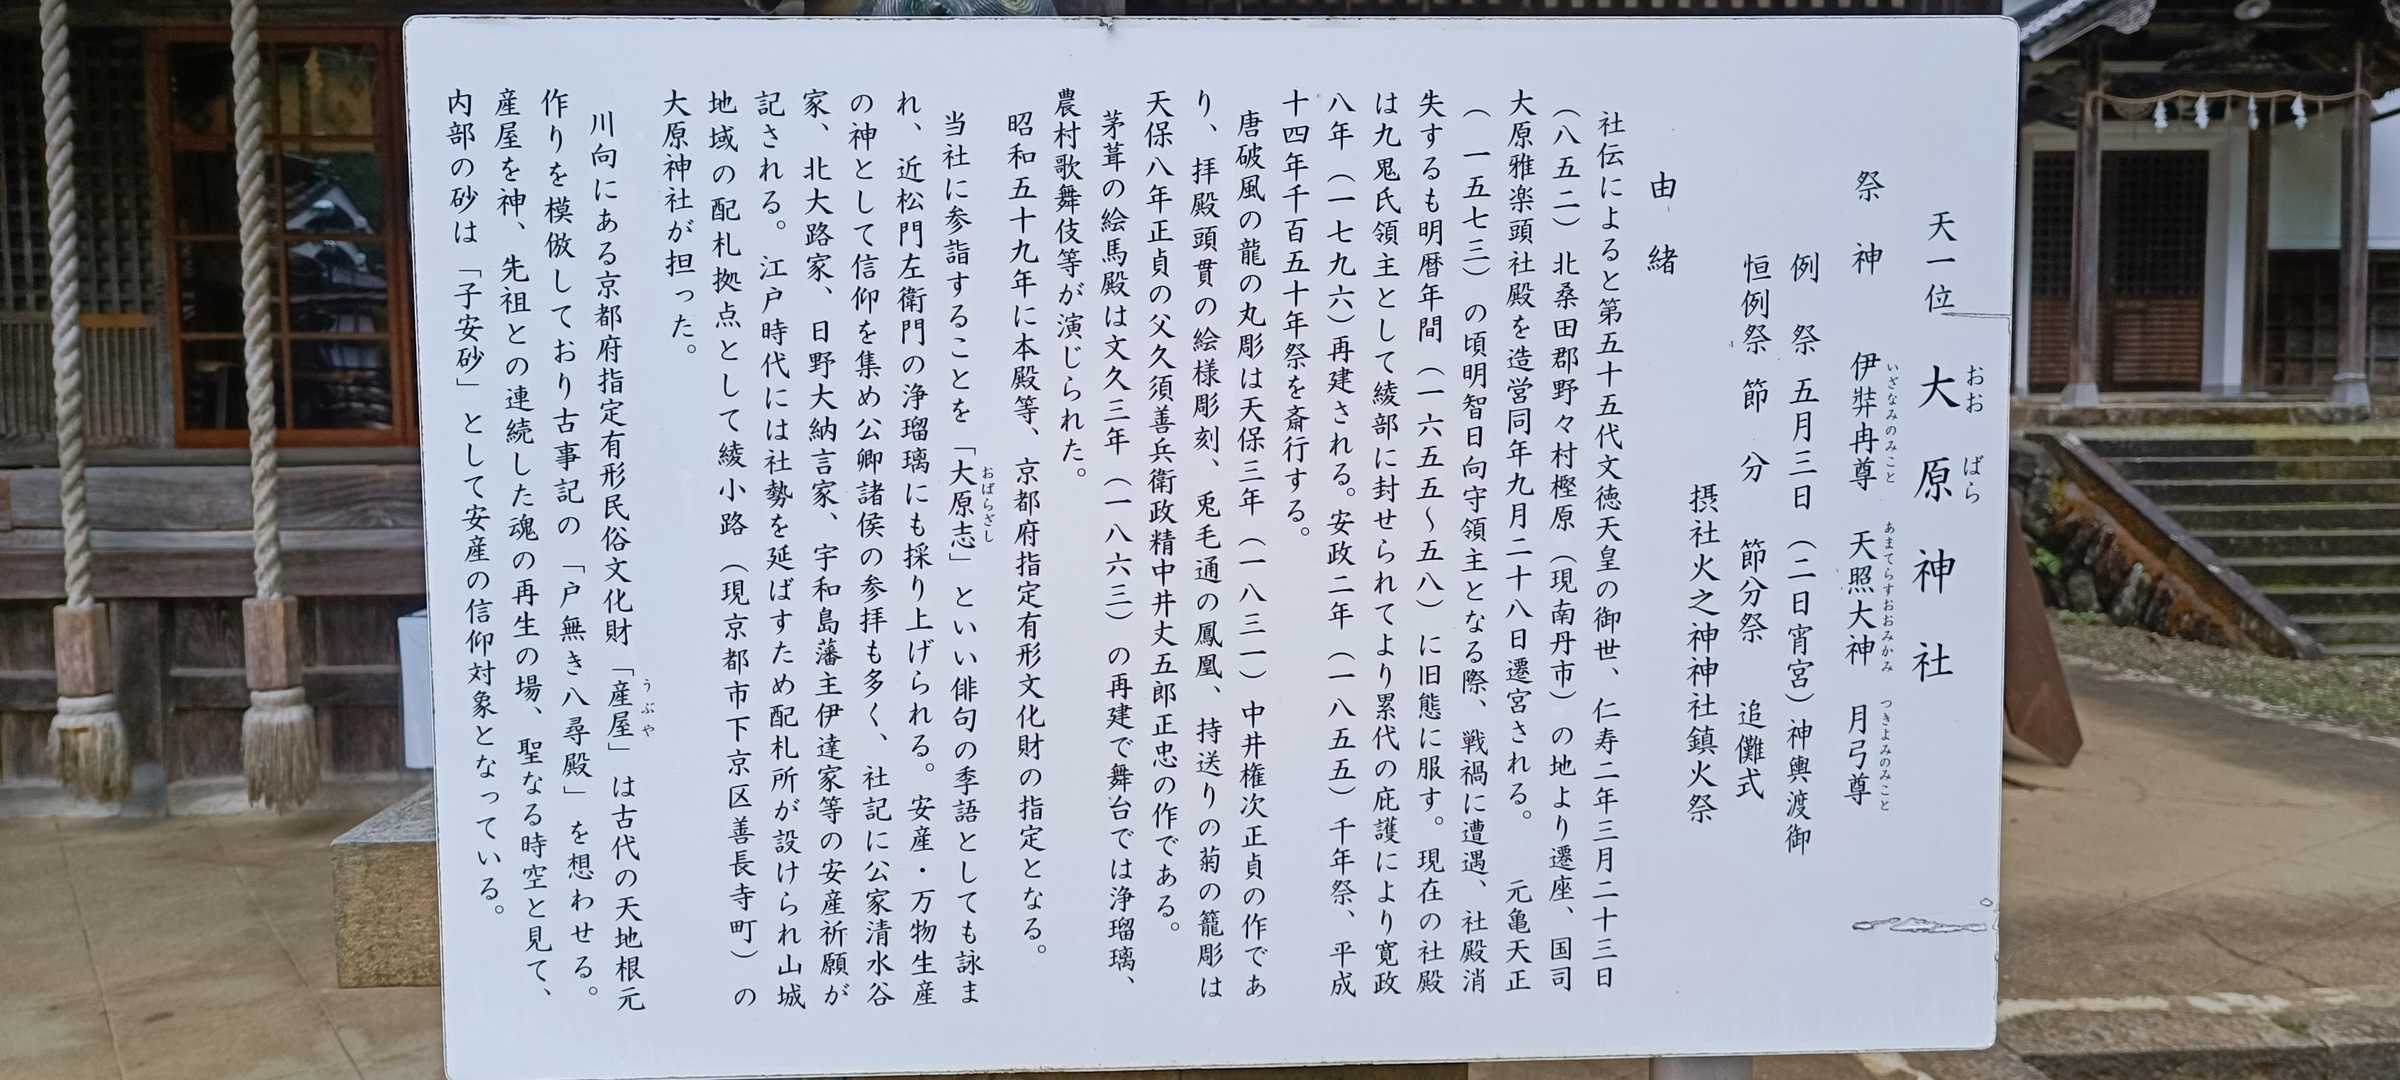 天一位　大原神社
おお　ばら
祭　神　伊弉冉尊　天照大神　月弓尊
いざなみのみこと　あまてらすおおみかみ　つきよみのみこと
例　祭　五月三日（二日宵宮）神輿渡御
恒例祭　節　分　節分祭　追儺式
摂社火之神神社鎮火祭
由　緒
社伝によると第五十五代文徳天皇の御世、仁寿二年三月二十三日
（八五二）北桑田郡野々村樫原（現南丹市）の地より遷座、国司
大原雅楽頭社殿を造営同年九月二十八日遷宮される。　元亀天正
（一五七三）の頃明智日向守領主となる際、戦禍に遭遇、社殿消
失するも明暦年間（一六五五～五八）に旧態に服す。現在の社殿
は九鬼氏領主として綾部に封せられてより累代の庇護により寛政
八年（一七九六）再建される。安政二年（一八五五）千年祭、平成
十四年千百五十年祭を斎行する。
唐破風の龍の丸彫は天保三年（一八三一）中井権次正貞の作であ
り、拝殿頭貫の絵様彫刻、兎毛通の鳳凰、持送りの菊の籠彫は
天保八年正貞の父久須善兵衛政精中井丈五郎正忠の作である。
茅葺の絵馬殿は文久三年（一八六三）の再建で舞台では浄瑠璃、
農村歌舞伎等が演じられた。
昭和五十九年に本殿等、京都府指定有形文化財の指定となる。
当社に参詣することを「大原志」といい俳句の季語としても詠ま
おばらざし
れ、近松門左衛門の浄瑠璃にも採り上げられる。安産・万物生産
の神として信仰を集め公卿諸侯の参拝も多く、社記に公家清水谷
家、北大路家、日野大納言家、宇和島藩主伊達家等の安産祈願が
記される。江戸時代には社勢を延ばすため配札所が設けられ山城
地域の配札拠点として綾小路（現京都市下京区善長寺町）の
大原神社が担った。
川向にある京都府指定有形民俗文化財「産屋」は古代の天地根元
うぶや
作りを模倣しており古事記の「戸無き八尋殿」を想わせる。
産屋を神、先祖との連続した魂の再生の場、聖なる時空と見て、
内部の砂は「子安砂」として安産の信仰対象となっている。